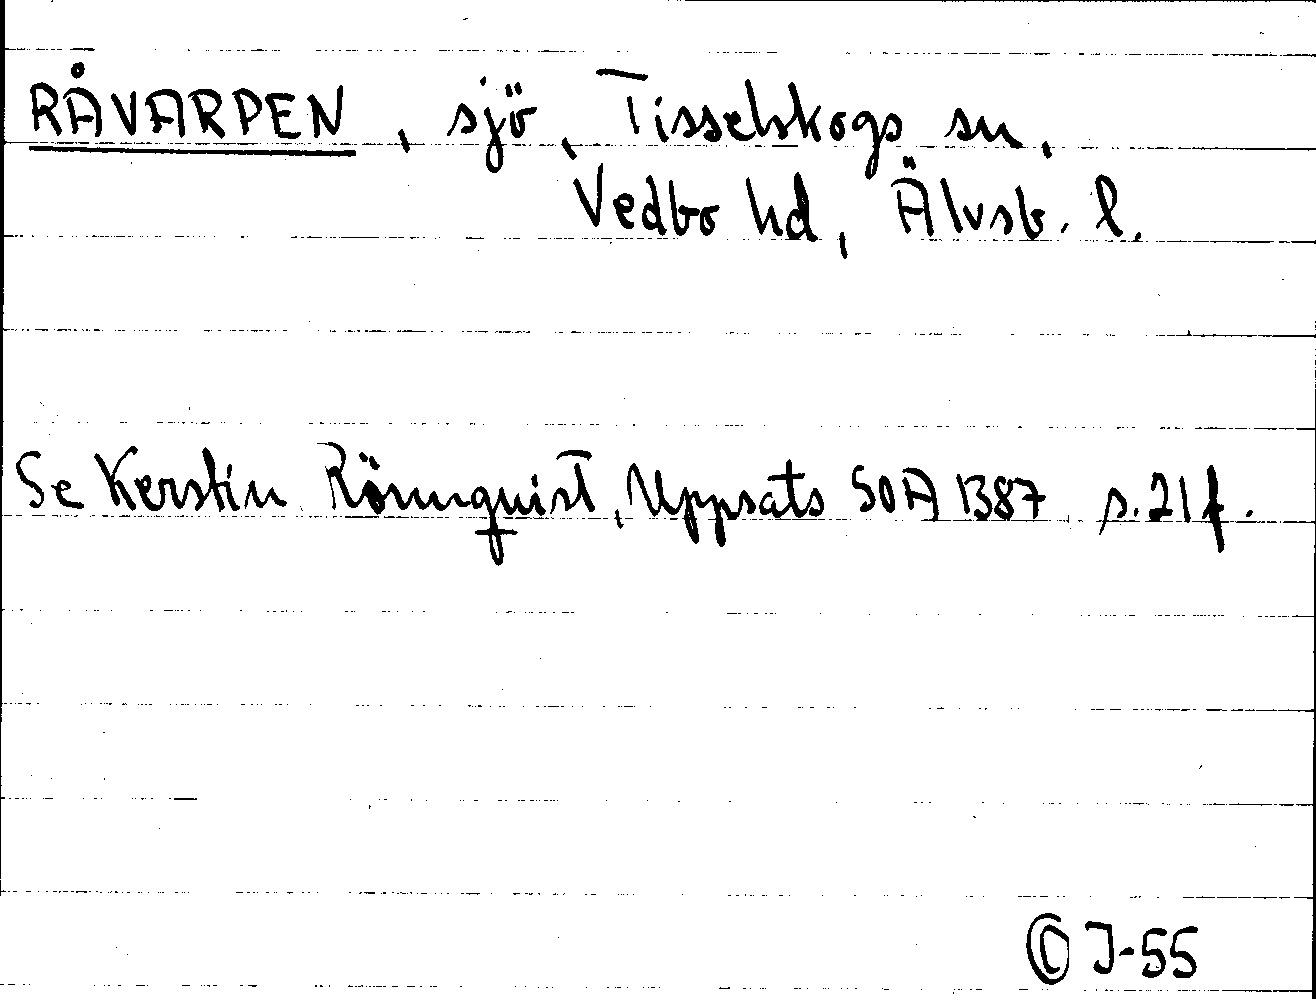 RÅVARPEN, sjö, Tisselskogs sn,
Vedbo hd, Älvsb. l.
Se Kerstin Rönnquist, Uppsats SOA 1387 s. 21 f.
© J-55